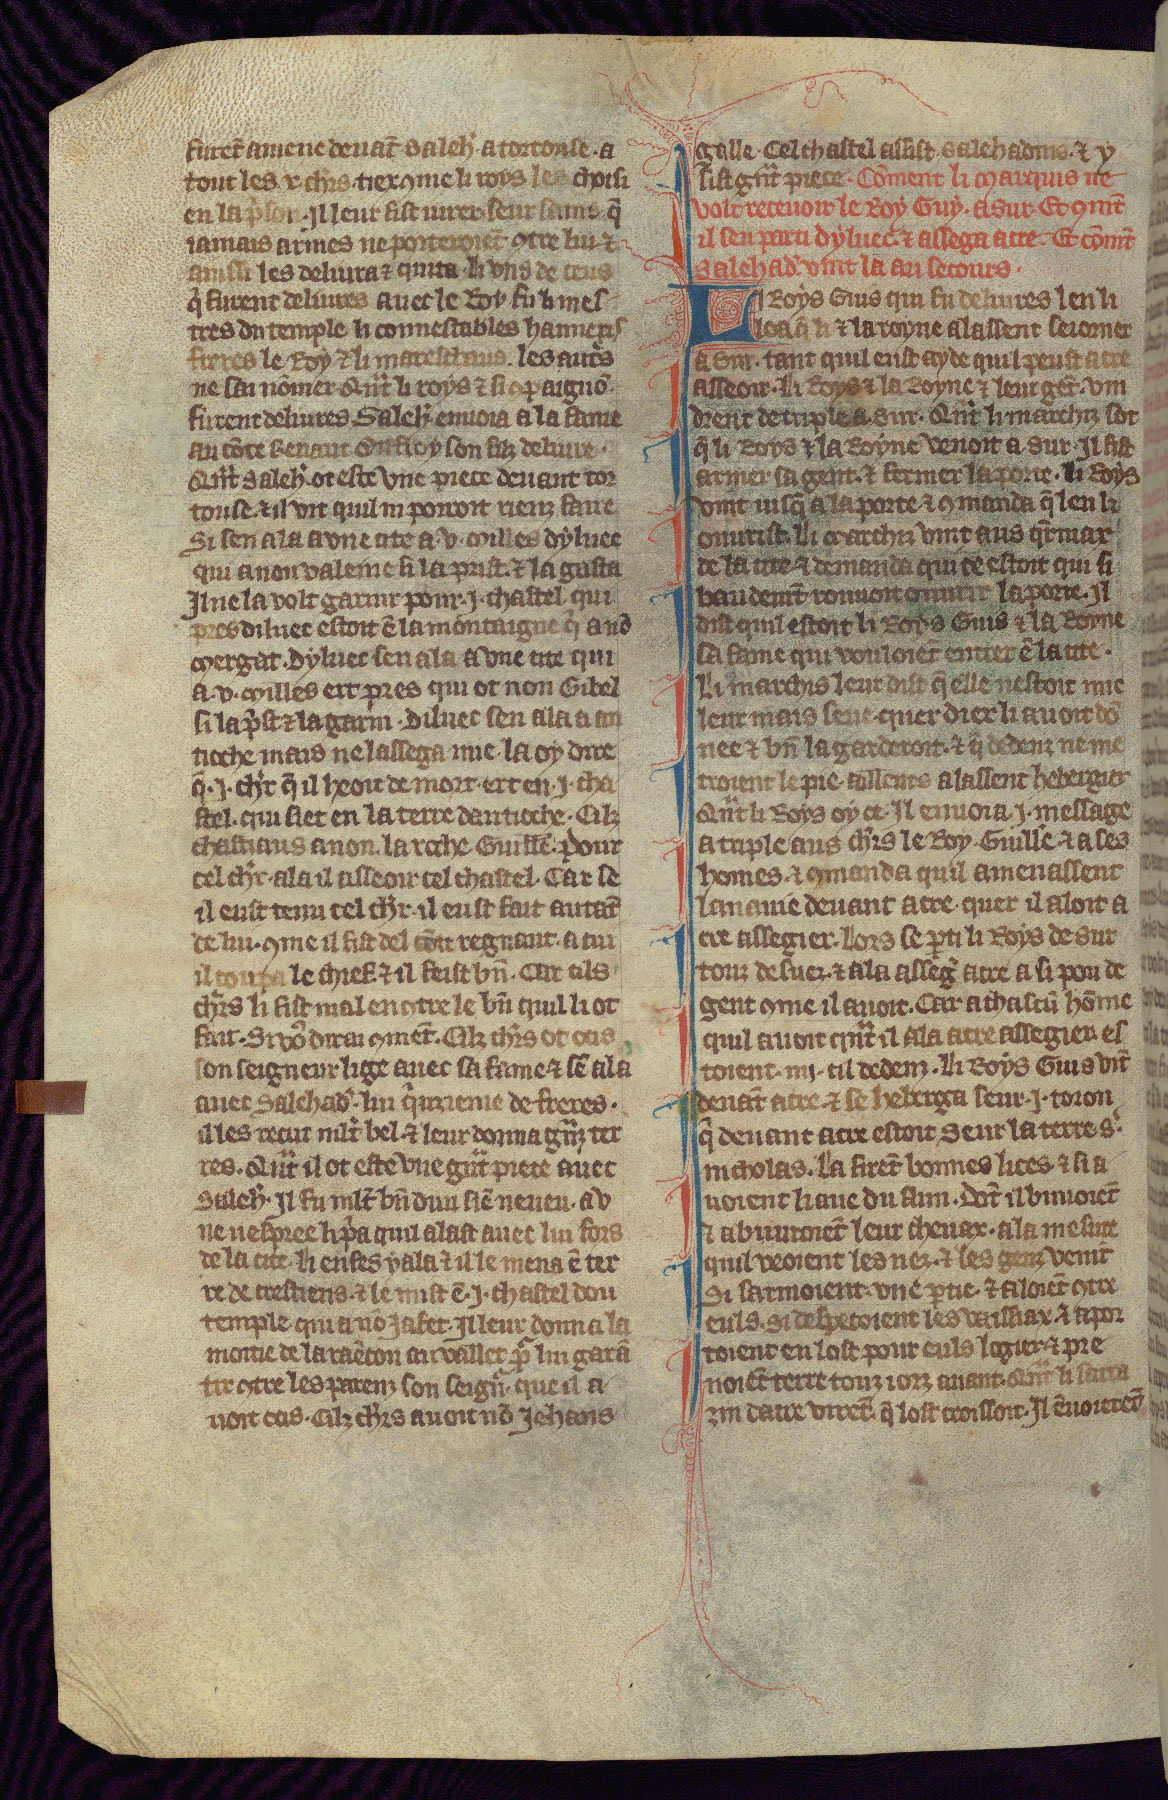 furet̃ amene deuãt saleh̃. a tortouse. a
tout les .x. chr̃s. tiex ꝯme li roys les choisi
en la p̃son. Il leur fist iurer seur sains. q̃
iamais armes ne porteroiẽt ꝯtre lui. ⁊
ainssi les deliura ⁊ quita. li vns de ceus
q̃ furent deliures auec le Roy fu li mes
tres du temple. li connestables haimeris
freres le Roy ⁊ li mareschaus. les autr̃s
ne sai nõmer. Qñt li roys ⁊ si ꝯpaignõ
furent deliures. Saleh̃. enuoia a la fame
au cõte Renaut Onfrey son filz deliure.
Qñt saleh̃. ot este vne piece deuant tor
touse. ⁊ il vit quil ni pouoit rienz faire
Si sen ala a vne cite a .v. milles dyluec
qui a non valenie si la prist. ⁊ la gasta
Il ne la volt garnir pour .j. chastel qui
pres diluec estoit ẽ la montaigne q̃ a nõ
mergat. Dyluec sen ala a vne cite qui
a .v. milles ert pres qui ot non Gibel
si la p̃st ⁊ la garni. Diluec sen ala a an
tioche mais ne lassega mie. la oy dire
q̃ .j. chr̃. q̃ il heoit de mort. ert en .j. cha
stel. qui siet en la terre dantioche. Cilz
chastiaus a non. la roche Guillẽ. Pour
cel chr̃. ala il asseoir cel chastel. Car se
il eust tenu cel chr̃. il eust fait autãt
de lui. ꝯme il fist del cõte regnaut. a cui
il coupa le chief. ⁊ il feist bñ. Car cils
chr̃s li fist mal en ꝯtre le bñ quil li ot
fait. Si võ dirai ꝯmẽt. Cilz chr̃s ot ocis
son seigneur lige auec sa fame. ⁊ sẽ ala
auec Salehad̃. lui q̃rtieme de freres.
il les recut mlt̃ bel. ⁊ leur donna gñz ter
res. Qñt il ot este vne gñt piece auec
Saleh̃. Il fu mlt̃ bñ dun siẽ neueu. a v
ne vespree li p̃a quil alast auec lui fors
de la cite. li enfes y ala ⁊ il le mena ẽ ter
re de crestiens. ⁊ le mist ẽ .j. chastel dou
temple. qui a nõ Jafet. Il leur donna la
moitie de la raẽcon au vallet p̃ lui garã
tir ꝯtre les parenz son seign̄. que il a
uoit ocis. Cilz chr̃s auoit nõ Jehans
galle. Cel chastel assist. salehadins. ⁊ y
sist gñt piece. Cõment li marquis ne
volt receuoir le Roy Guy. a sur. Et ꝯmẽt
il sen parti dyluec. ⁊ assega acre. Et cõmẽt
Salehad̃. vint la au secours.
LI Roys Guis qui fu deliures len li
loa q̃ li ⁊ la royne alassent seiorner
a Sur. tant quil eust ayde quil peust acre
asseoir. Li Roys ⁊ la Royne ⁊ leur gẽt. vin
drent de triple a sur. Qñt li marchiz sot
q̃ li Roys ⁊ la Royne venoit a sur. Il fist
armer sa gent. ⁊ fermer la porte. li Roys
vint iusq̃ a la porte ⁊ ꝯmanda q̃ len li
ouurist. Li marchiz vint aus q̃rniax
de la cite. ⁊ demanda qui cẽ estoit qui si
baudemẽt rouuoit ouurir la porte. Il
dist quil estoit li Roys Guis ⁊ la Royne
sa fame qui vouloiẽt entrer ẽ la cite.
Li marchis leur dist q̃ elle nestoit mie
leur mais seue. quer diex li auoit dõ
nee ⁊ bñ la garderoit. ⁊ q̃ dedenz ne me
troient le pie. ailleurs alassent hebergier
Qñt li Roys oy ce. Il enuoia .j. message
a triple aus chr̃s le Roy Guille. ⁊ a ses
homes. ⁊ ꝯmanda quil amenassent
la nauie deuant acre. quer il aloit a
cre assegier. Lors se p̃ti li Roys de sur
touz desuez. ⁊ ala assegr̃ acre a si pou de
gent ꝯme il auoit. Car a chascũ hõme
quil auoit qñt il ala acre assegier. es
toient .iiij. cil dedenz. Li Roys Guis vĩt
deuãt acre. ⁊ se heberga seur .j. toron
q̃ deuant acre estoit. Seur la terre s̃.
nicholas. La firẽt bonnes lices. ⁊ si a
uoient liaue du flun. Dõt il buuoiẽt
⁊ abuuroiẽt leur cheuax. a la mesure
quil veoient les nez. ⁊ les genz venir
Si sarmoient vne p̃tie. ⁊ aloiẽt ꝯtre
euls. Si despecoient les vaissiax. ⁊ apor
toient en lost pour euls logier. ⁊ pre
noiẽt terre touz iorz auant. Qñt li sarra
zin dacre virẽt. q̃ lost croissoit. Il ẽuoierẽt